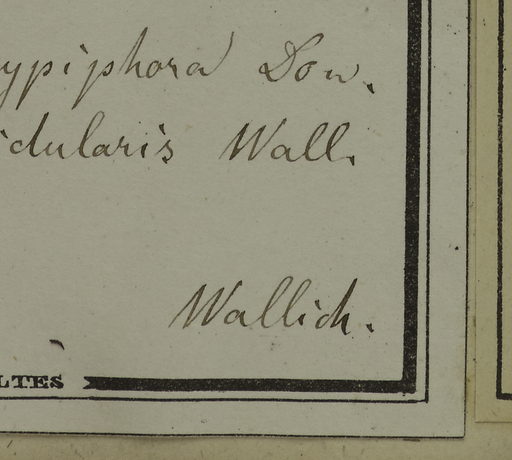 ypiphora Don.
idularis Wall.
Wallich.
LTES